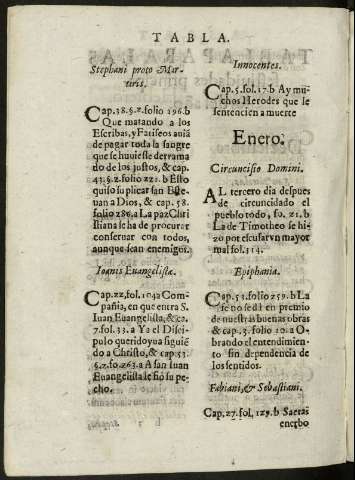 TABLA.
Stephani proto Mar-
tiris.
Cap.38.§.2.folio 196.b
Que matando a los
Escribas, y Fariseos auiã
de pagar toda la sangre
que se huuiesse derrama
do de los justos, & cap.
43.§.2.folio 221.b Esto
quiso suplicar san Este-
uan a Dios, & cap. 58.
folio 286.a La paz Chri
stiana se ha de procurar
conseruar con todos,
aunque sean enemigos.
Ioanis Euangelistæ.
Cap.22.fol.104.a Com-
pañia, en que entra S.
Iuan Euangelista, & ca.
7.fol.33.a Ya el Disci-
pulo querido yua siguiē
do a Christo, & cap.53.
§.2.fo.263.a A san Iuan
Euangelista se fiò su pe-
cho.
Innocentes.
Cap.5.fol.17.b Ay mu-
chos Herodes que le
sentencien a muerte
Enero.
Circuncisio Domini.
AL tercero dia despues
de circuncidado el
pueblo todo, fo.21.b
La de Timotheo se hi-
zo por escusar vn mayor
mal fol.314.
Epiphania.
Cap.51.folio 259.b La
fe no se dà en premio
de nuestras buenas obras
& cap.3.folio 10.a O-
brando el entendimien-
to sin dependencia de
los sentidos.
Fabiani, & Sebastiani.
Cap.27.fol.129.b Saetas
en